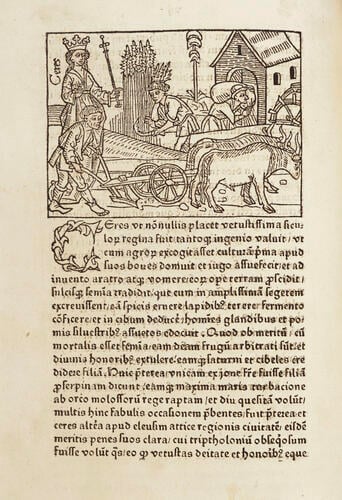 Ceres
CEres vt nōnullis placet vetustissima sicu⸗
loꝝ regina fuit/tantoqꝫ ingenio valuit/vt
cum agroꝝ excogitasset culturā/pͥma apud
suos boues domuit et iugo assuefecit/et ad
inuento aratro atqꝫ vomere/eoꝝ ope terram ꝓscidit/
sulcisqꝫ semīa tradidit/que cum in amplissimā segetem
excreuissent/eā spicis eruere lapidibꝰ terere fermento
cōficere/et in cibum deducē/homīes glandibus et po⸗
mis siluestribꝰ assuetos edocuit. Quod ob meritū/cū
mortalis esset femīa/eam deam frugū arbitrati sūt/et
diuinis honoribꝰ extulere/eamqꝫ saturni et cibeles cre
didere filiā. Huic pͥterea vnicam ex ione fr̄e fuisse filiā
ꝓserpinam dicunt/eamqꝫ maxima maris turbacione
ab orco molossoꝝ rege raptam/et diu quesitā volūt/
multis hinc fabulis occasionem pͣbentes/fuit pͥterea et
ceres altēa apud eleusim attice regionis ciuitatē/eisdē
meritis penes suos clara/cui triptholoniū obseqͦsum
fuisse volūt qͦs/eo ꝙ vetustas deitate et honoribꝰ eque